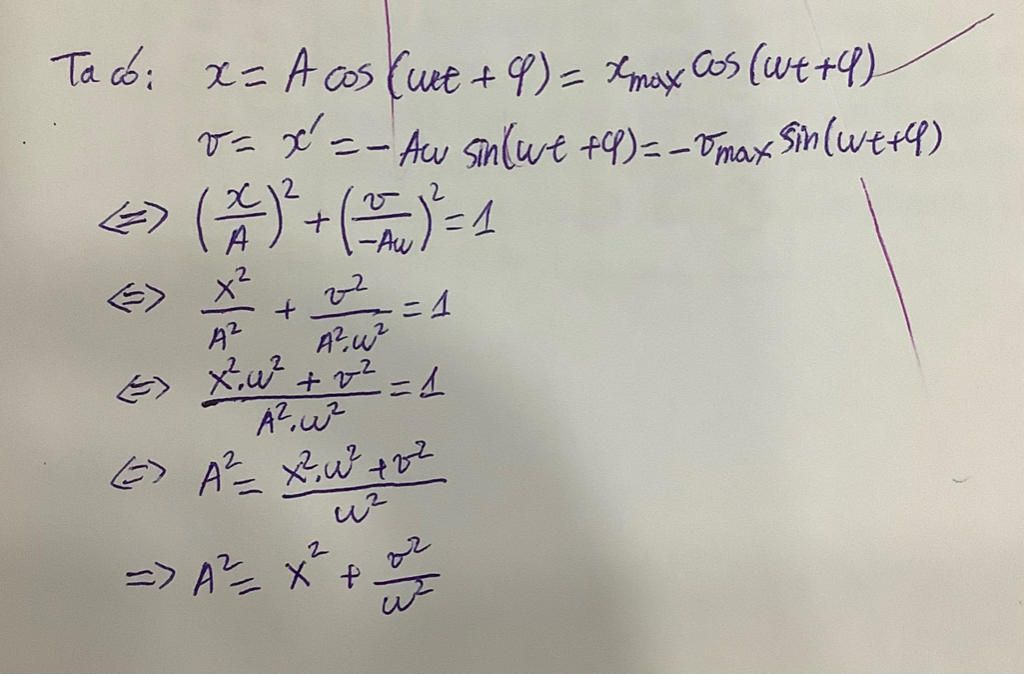 Ta có: x = A cos (ωt + φ) = xmax cos (ωt + φ)
v = x' = - Aω sin(ωt + φ) = - vmax sin(ωt + φ)
<=> (x/A)² + (v/-Aω)² = 1
<=> x²/A² + v²/A².ω² = 1
<=> x².ω² + v²/A².ω² = 1
<=> A² = x².ω² + v²/ω²
=> A² = x² + v²/ω²